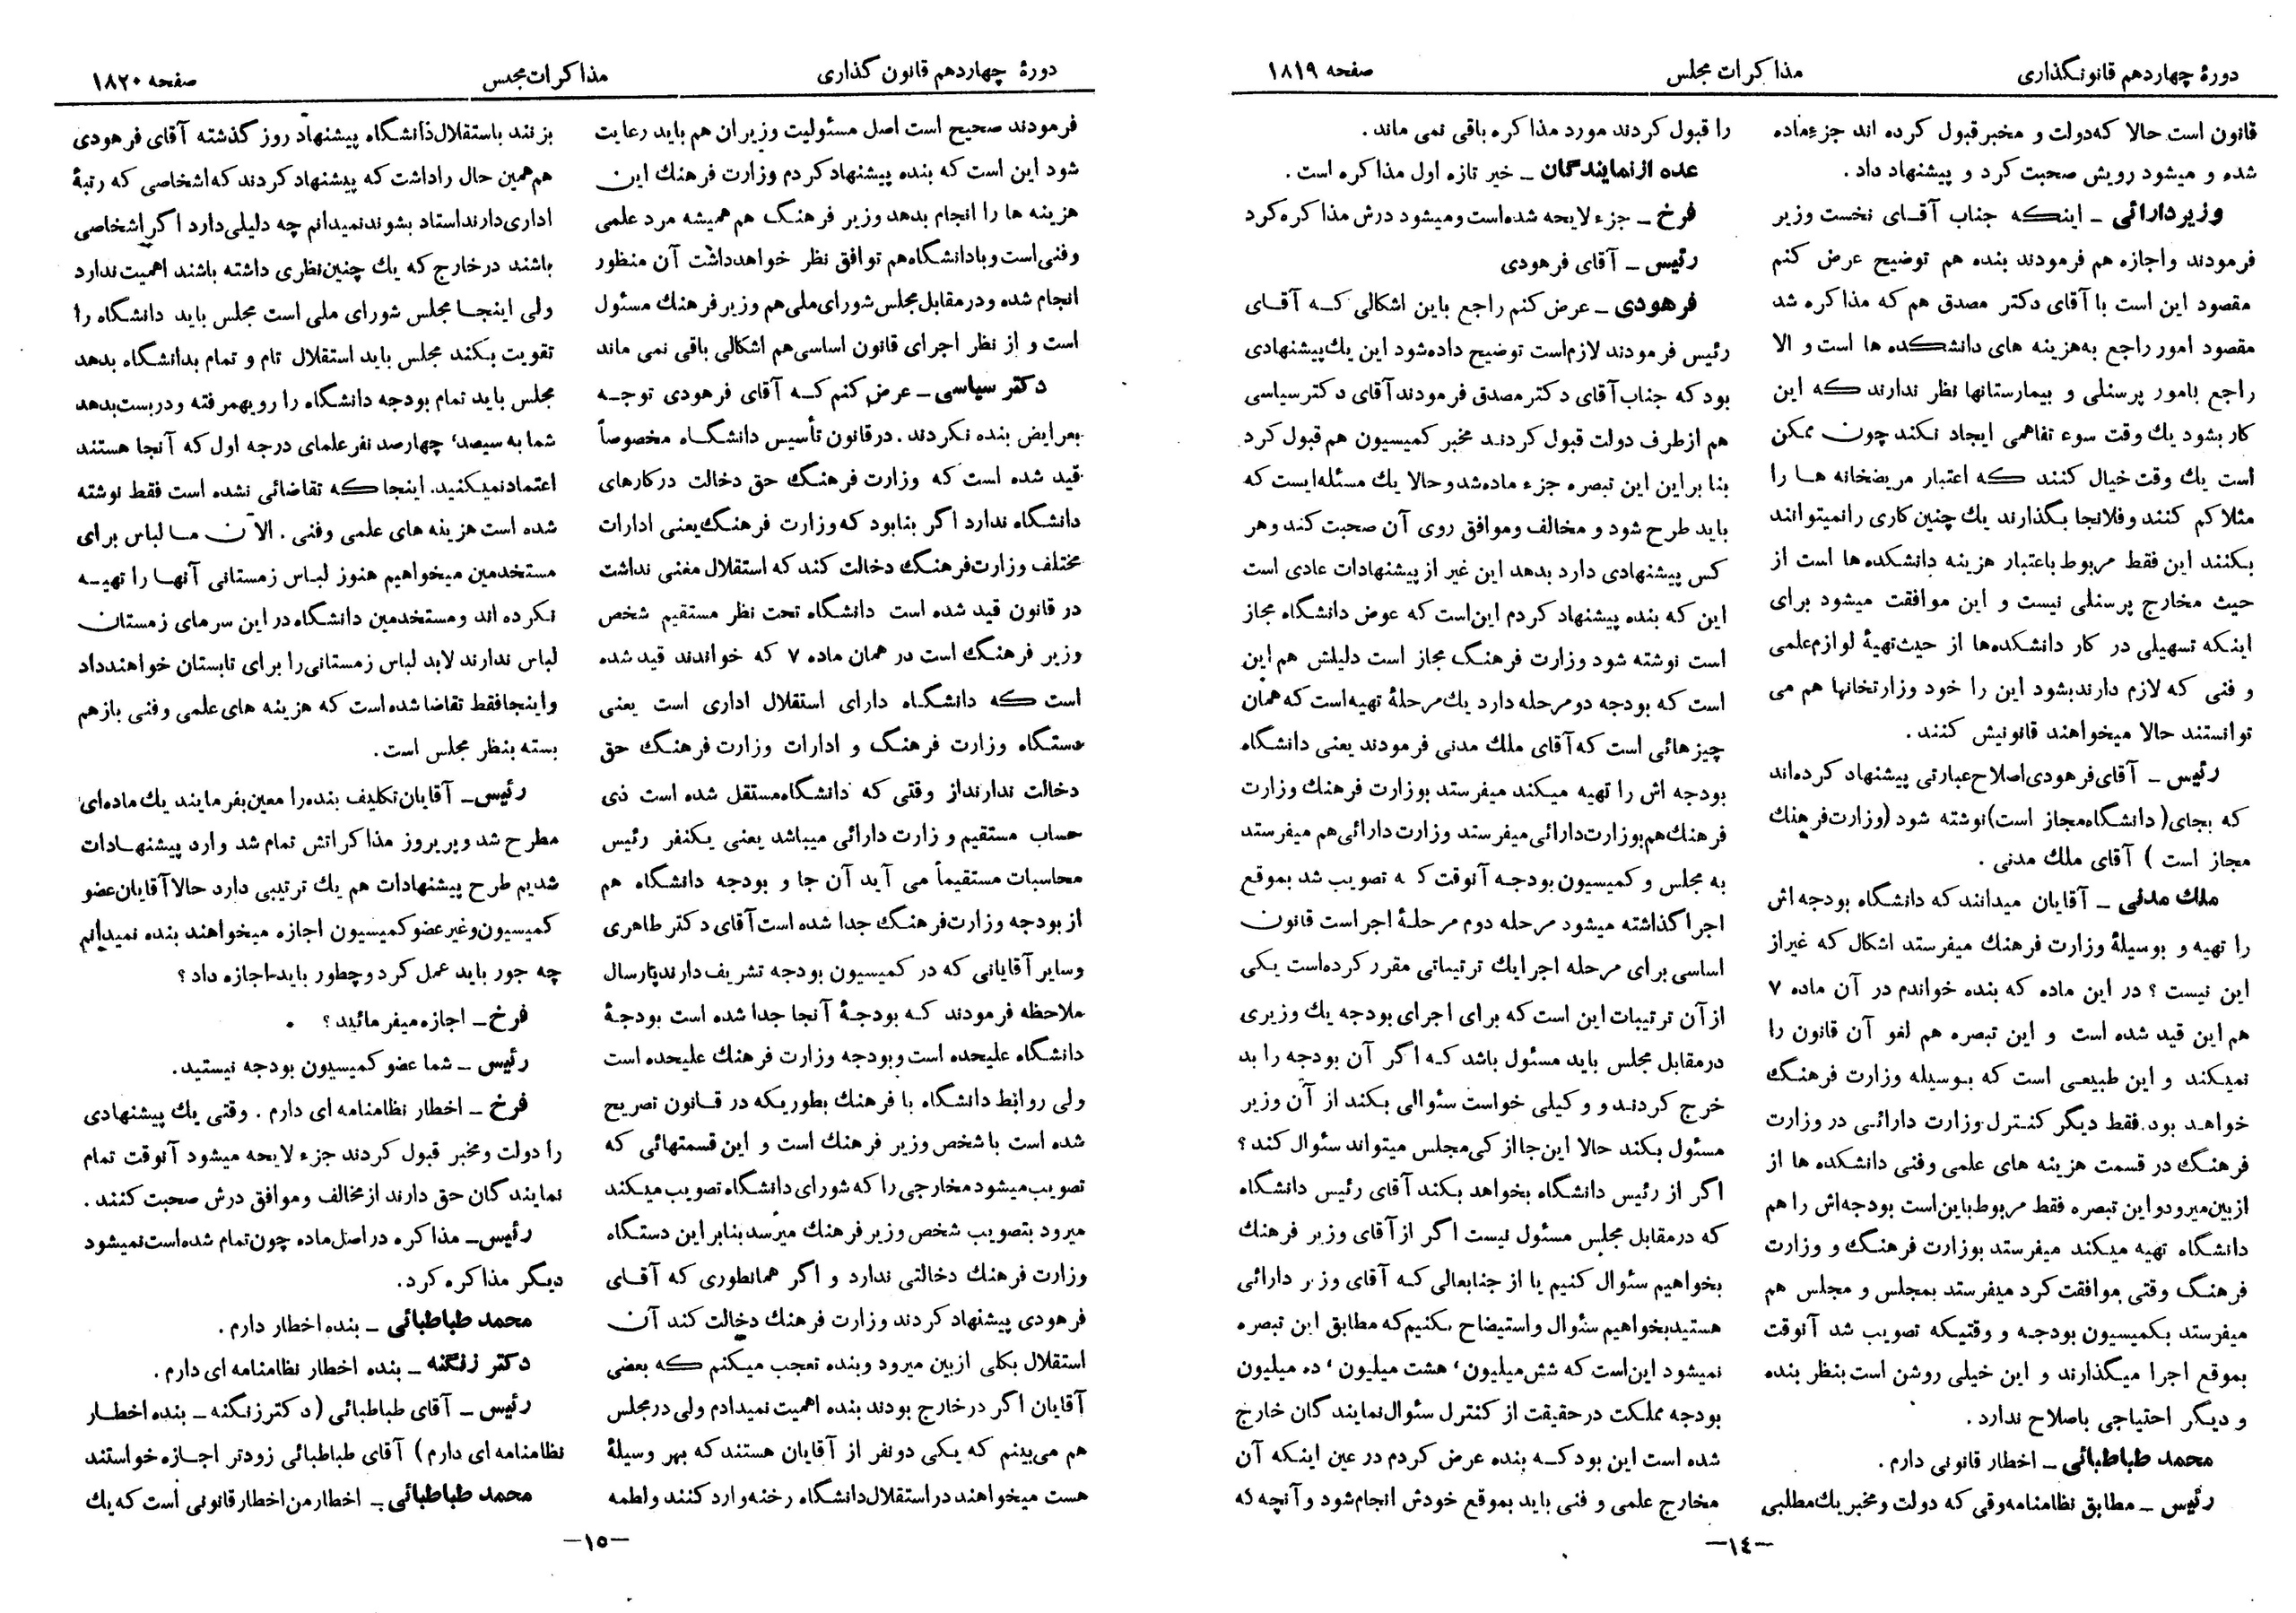 دورهٔ چهاردهم قانونگذاری
مذاکرات مجلس
صفحه ۱۸۱۹
قانون است حالا که دولت و مخبر قبول کرده اند جزء ماده
شده و میشود رویش صحبت کرد و پیشنهاد داد.
وزیر دارائی ـ اینکه جناب آقای نخست وزیر
فرمودند و اجازه هم فرمودند بنده هم توضیح عرض کنم
مقصود این است با آقای دکتر مصدق هم که مذاکره شد
مقصود امور راجع به هزینه های دانشکده ها است و الا
راجع بامور پرسنلی و بیمارستانها نظر ندارند که این
کار بشود یك وقت سوء تفاهمی ایجاد نکند چون ممکن
است یك وقت خیال کنند که اعتبار مریضخانه ها را
مثلا کم کنند و فلانجا بگذارند یك چنین کاری را نمیتوانند
بکنند این فقط مربوط باعتبار هزینه دانشکده ها است از
حیث مخارج پرسنلی نیست و این موافقت میشود برای
اینکه تسهیلی در کار دانشکده‌ها از حیث تهیهٔ لوازم علمی
و فنی که لازم دارند بشود این را خود وزارتخانها هم می
توانستند حالا میخواهند قانونیش کنند.
رئیس ـ آقای فرهودی اصلاح عبارتی پیشنهاد کرده‌اند
که بجای (دانشگاه مجاز است) نوشته شود (وزارت فرهنك
مجاز است) آقای ملك مدنی.
ملك مدنی ـ آقایان میدانند که دانشگاه بودجه اش
را تهیه و بوسیلهٔ وزارت فرهنك میفرستد اشکال که غیر از
این نیست؟ در این ماده که بنده خواندم در آن ماده ۷
هم این قید شده است و این تبصره هم لغو آن قانون را
نمیکند و این طبیعی است که بوسیله وزارت فرهنگ
خواهد بود. فقط دیگر کنترل وزارت دارائی در وزارت
فرهنگ در قسمت هزینه های علمی و فنی دانشکده ها از
از بین میرود و این تبصره فقط مربوط باین است بودجه‌اش را هم
دانشگاه تهیه میکند میفرستد بوزارت فرهنگ و وزارت
فرهنگ وقتی موافقت کرد میفرستد بمجلس و مجلس هم
میفرستد بکمیسیون بودجه و وقتیکه تصویب شد آنوقت
بموقع اجرا میگذارند و این خیلی روشن است بنظر بنده
و دیگر احتیاجی باصلاح ندارد.
محمد طباطبائی ـ اخطار قانونی دارم.
رئیس ـ مطابق نظامنامه وقی که دولت و مخبر یك مطلبی
را قبول کردند مورد مذاکره باقی نمی ماند.
عده از نمایندگان ـ خیر تازه اول مذاکره است.
فرخ ـ جزء لایحه شده است و میشود درش مذاکره کرد
رئیس ـ آقای فرهودی
فرهودی ـ عرض کنم راجع باین اشکالی که آقای
رئیس فرمودند لازم است توضیح داده شود این یك پیشنهادی
بود که جناب آقای دکتر مصدق فرمودند آقای دکتر سیاسی
هم از طرف دولت قبول کردند مخبر کمیسیون هم قبول کرد
بنا براین این تبصره جزء ماده شد و حالا یك مسئله‌ایست که
باید طرح شود و مخالف و موافق روی آن صحبت کند و هر
کس پیشنهادی دارد بدهد این غیر از پیشنهادات عادی است
این که بنده پیشنهاد کردم این است که عوض دانشگاه مجاز
است نوشته شود وزارت فرهنگ مجاز است دلیلش هم این
است که بودجه دو مرحله دارد یك مرحلهٔ تهیه است که همان
چیزهائی است که آقای ملك مدنی فرمودند یعنی دانشگاه
بودجه اش را تهیه میکند میفرستد بوزارت فرهنك وزارت
فرهنك هم بوزارت دارائی میفرستد وزارت دارائی هم میفرستد
به مجلس و کمیسیون بودجه آنوقت که تصویب شد بموقع
اجرا گذاشته میشود مرحله دوم مرحلهٔ اجر است قانون
اساسی برای مرحله اجرا یك ترتیباتی مقرر کرده‌است یکی
از آن ترتیبات این است که برای اجرای بودجه یك وزیری
در مقابل مجلس باید مسئول باشد که اگر آن بودجه را بد
خرج کردند و وکیلی خواست سئوالی بکند از آن وزیر
مسئول بکند حالا این جا از کی مجلس میتواند سئوال کند؟
اگر از رئیس دانشگاه بخواهد بکند آقای رئیس دانشگاه
که در مقابل مجلس مسئول نیست اگر از آقای وزیر فرهنك
بخواهیم سئوال کنیم یا از جنابعالی که آقای وزیر دارائی
هستید بخواهیم سئوال و استیضاح بکنیم که مطابق این تبصره
نمیشود این است که شش میلیون، هشت میلیون، ده میلیون
بودجه مملکت در حقیقت از کنترل سئوال نمایندگان خارج
شده است این بود که بنده عرض کردم در عین اینکه آن
مخارج علمی و فنی باید بموقع خودش انجام شود و آنچه که
ـ١٤ـ
دورهٔ چهاردهم قانون گذاری
مذاکرات مجلس
صفحه ۱۸۲۰
فرمودند صحیح است اصل مسئولیت وزیران هم باید رعایت
شود این است که بنده پیشنهاد کردم وزارت فرهنك این
هزینه ها را انجام بدهد وزیر فرهنگ هم همیشه مرد علمی
و فنی است و با دانشگاه هم توافق نظر خواهد داشت آن منظور
انجام شده و در مقابل مجلس شورای ملی هم وزیر فرهنك مسئول
است و از نظر اجرای قانون اساسی هم اشکالی باقی نمی ماند
دکتر سیاسی ـ عرض کنم که آقای فرهودی توجه
بعرایض بنده نکردند. در قانون تأسیس دانشگاه مخصوصاً
قید شده است که وزارت فرهنگ حق دخالت در کارهای
دانشگاه ندارد اگر بنا بود که وزارت فرهنگ یعنی ادارات
مختلف وزارت فرهنگ دخالت کند که استقلال مغنی نداشت
در قانون قید شده است دانشگاه تحت نظر مستقیم شخص
وزیر فرهنگ است در همان ماده ۷ که خواندند قید شده
است که دانشگاه دارای استقلال اداری است یعنی
دستگاه وزارت فرهنگ و ادارات وزارت فرهنگ حق
دخالت ندارند از وقتی که دانشگاه مستقل شده است ذی
حساب مستقیم وزارت دارائی میباشد یعنی یکنفر رئیس
محاسبات مستقیماً می آید آن جا و بودجه دانشگاه هم
از بودجه وزارت فرهنگ جدا شده است آقای دکتر طاهری
و سایر آقایانی که در کمیسیون بودجه تشریف دارند پارسال
ملاحظه فرمودند که بودجهٔ آنجا جدا شده است بودجهٔ
دانشگاه علیحده است و بودجه وزارت فرهنك علیحده است
ولی روابط دانشگاه با فرهنك بطوریکه در قانون تصریح
شده است با شخص وزیر فرهنك است و این قسمتهائی که
تصویب میشود مخارجی را که شورای دانشگاه تصویب میکند
میرود بتصویب شخص وزیر فرهنك میرسد بنابر این دستگاه
وزارت فرهنك دخالتی ندارد و اگر همانطوری که آقای
فرهودی پیشنهاد کردند وزارت فرهنك دخالت کند آن
استقلال بکلی از بین میرود و بنده تعجب میکنم که بعضی
آقایان اگر در خارج بودند بنده اهمیت نمیدادم ولی در مجلس
هم می‌بینم که یکی دو نفر از آقایان هستند که بهر وسیلهٔ
هست میخواهند در استقلال دانشگاه رخنه وارد کنند و لطمه
بزنند باستقلال دانشگاه پیشنهاد روز گذشته آقای فرهودی
هم همین حال را داشت که پیشنهاد کردند که اشخاصی که رتبهٔ
اداری دارند استاد بشوند نمیدانم چه دلیلی دارد اگر اشخاصی
باشند در خارج که یك چنین نظری داشته باشند اهمیت ندارد
ولی اینجا مجلس شورای ملی است مجلس باید دانشگاه را
تقویت بکند مجلس باید استقلال تام و تمام بدانشگاه بدهد
مجلس باید تمام بودجه دانشگاه را رویهمرفته و دربست بدهد
شما به سیصد، چهارصد نفر علمای درجه اول که آنجا هستند
اعتماد نمیکنید. اینجا که تقاضائی نشده است فقط نوشته
شده است هزینه های علمی و فنی. الآن ما لباس برای
مستخدمین میخواهیم هنوز لباس زمستانی آنها را تهیه
نکرده اند و مستخدمین دانشگاه در این سرمای زمستان
لباس ندارند لابد لباس زمستانی را برای تابستان خواهند داد
و اینجا فقط تقاضا شده است که هزینه های علمی و فنی باز هم
بسته بنظر مجلس است.
رئیس ـ آقایان تکلیف بنده را معین بفرمایند یك ماده‌ای
مطرح شد و پریروز مذاکراتش تمام شد وارد پیشنهادات
شدیم طرح پیشنهادات هم یك ترتیبی دارد حالا آقایان عضو
کمیسیون و غیر عضو کمیسیون اجازه میخواهند بنده نمیدانم
چه جور باید عمل کرد و چطور باید اجازه داد؟
فرخ ـ اجازه میفرمائید؟
رئیس ـ شما عضو کمیسیون بودجه نیستید.
فرخ ـ اخطار نظامنامه ای دارم. وقتی یك پیشنهادی
را دولت و مخبر قبول کردند جزء لایحه میشود آنوقت تمام
نمایندگان حق دارند از مخالف و موافق درش صحبت کنند.
رئیس ـ مذاکره در اصل ماده چون تمام شده است نمیشود
دیگر مذاکره کرد.
محمد طباطبائی ـ بنده اخطار دارم.
دکتر زنگنه ـ بنده اخطار نظامنامه ای دارم.
رئیس ـ آقای طباطبائی (دکتر زنگنه ـ بنده اخطار
نظامنامه ای دارم) آقای طباطبائی زودتر اجازه خواستند
محمد طباطبائی ـ اخطار من اخطار قانونی است که یك
ـ١٥ـ